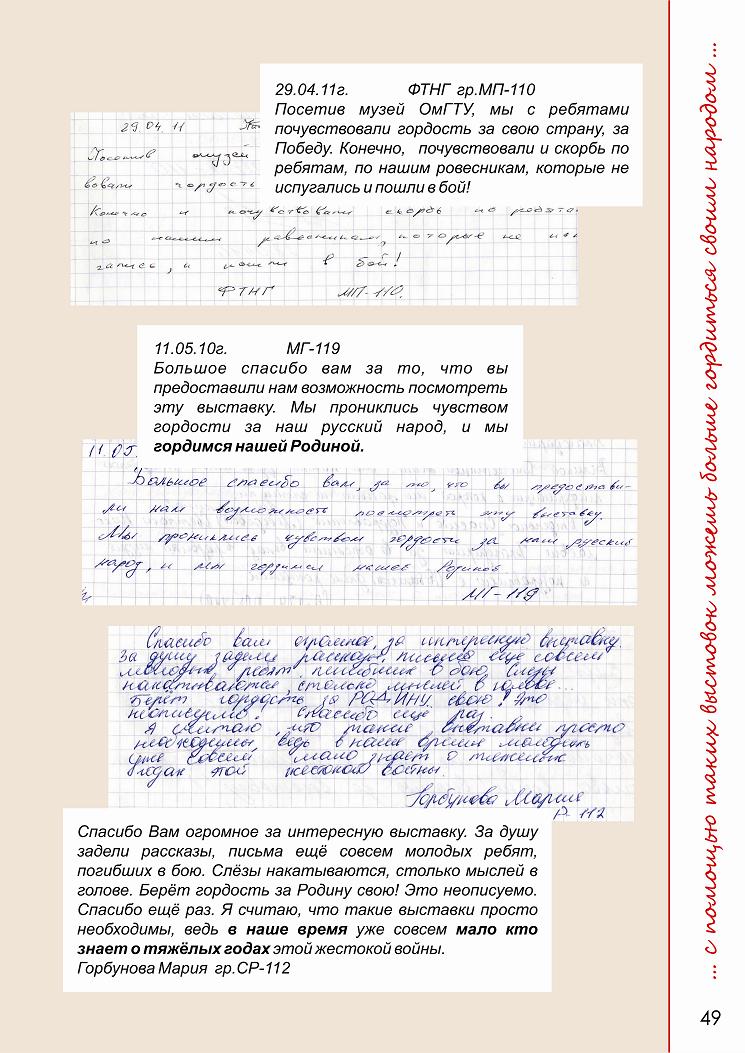 29.04.11г. ФТНГ гр.МП-110
Посетив музей ОмГТУ, мы с ребятами
почувствовали гордость за свою страну, за
Победу. Конечно, почувствовали и скорбь по
ребятам, по нашим ровесникам, которые не
испугались и пошли в бой!
29.04.11
Посетив музей
вовали гордость
Конечно и почувствовали скорбь по ребята
по нашим равесникам, которые не исп
гались, и пошли в бой!
ФТНГ МП-110.
11.05.10г. МГ-119
Большое спасибо вам за то, что вы
предоставили нам возможность посмотреть
эту выставку. Мы прониклись чувством
гордости за наш русский народ, и мы
гордимся нашей Родиной.
11.05.
Большое спасибо вам, за то, что вы предостави-
ли нам возможность посмотреть эту выставку.
Мы прониклись чувством гордости за наш русский
народ, и мы гордимся нашей Родиной
МГ-119
Спасибо вам огромное, за интересную выставку.
За душу задели рассказы, письма еще совсем
молодых ребят, погибших в бою. Слезы
накатываются, столько мыслей в голове...
Берет гордость за РОДИНУ свою! Это
неописуемо! Спасибо еще раз.
Я считаю, что такие выставки просто
необходимы, ведь в наше время молодежь
уже совсем мало знает о тяжелых
годах этой жестокой войны.
Горбунова Мария
Р-112
Спасибо Вам огромное за интересную выставку. За душу
задели рассказы, письма ещё совсем молодых ребят,
погибших в бою. Слёзы накатываются, столько мыслей в
голове. Берёт гордость за Родину свою! Это неописуемо.
Спасибо ещё раз. Я считаю, что такие выставки просто
необходимы, ведь в наше время уже совсем мало кто
знает о тяжёлых годах этой жестокой войны.
Горбунова Мария гр.СР-112
... с помощью таких выстовок можешь больше гордиться своим народом ...
49